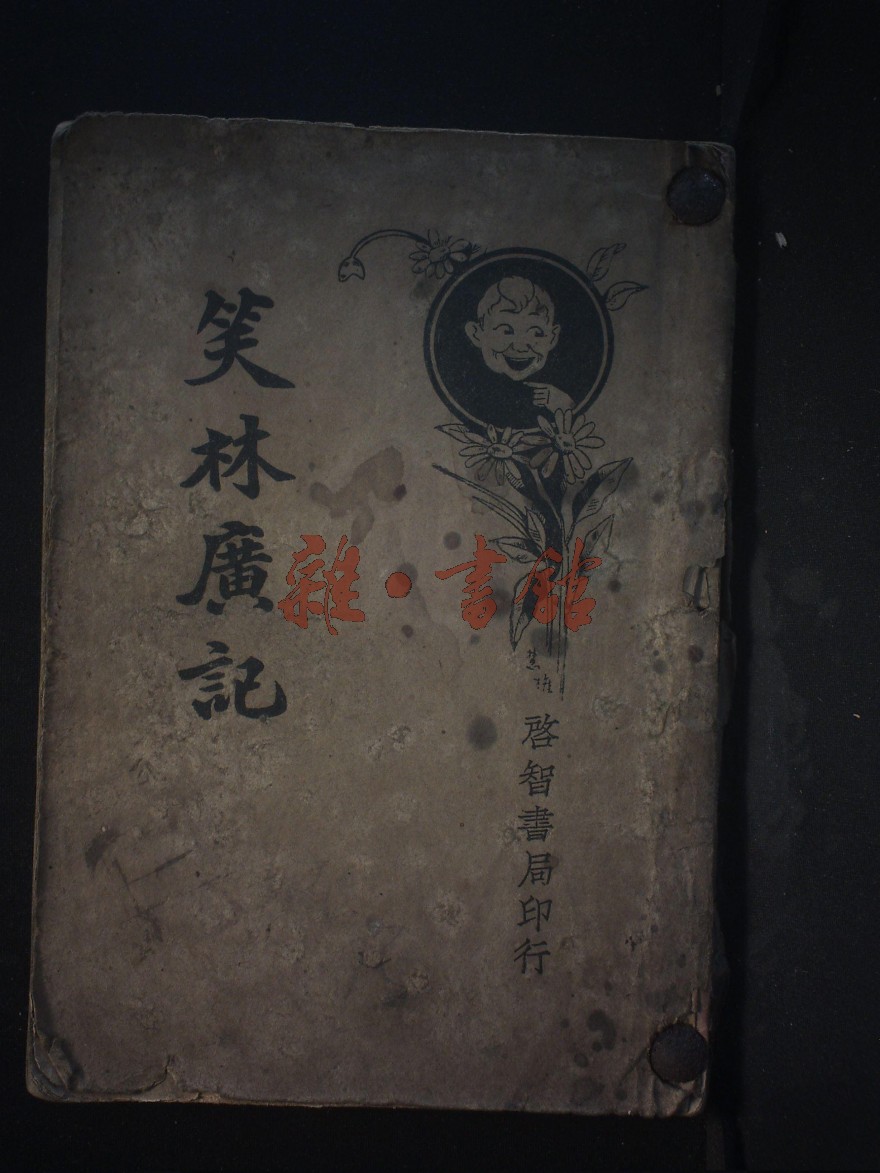 笑林廣記
啓智書局印行
雜·書館